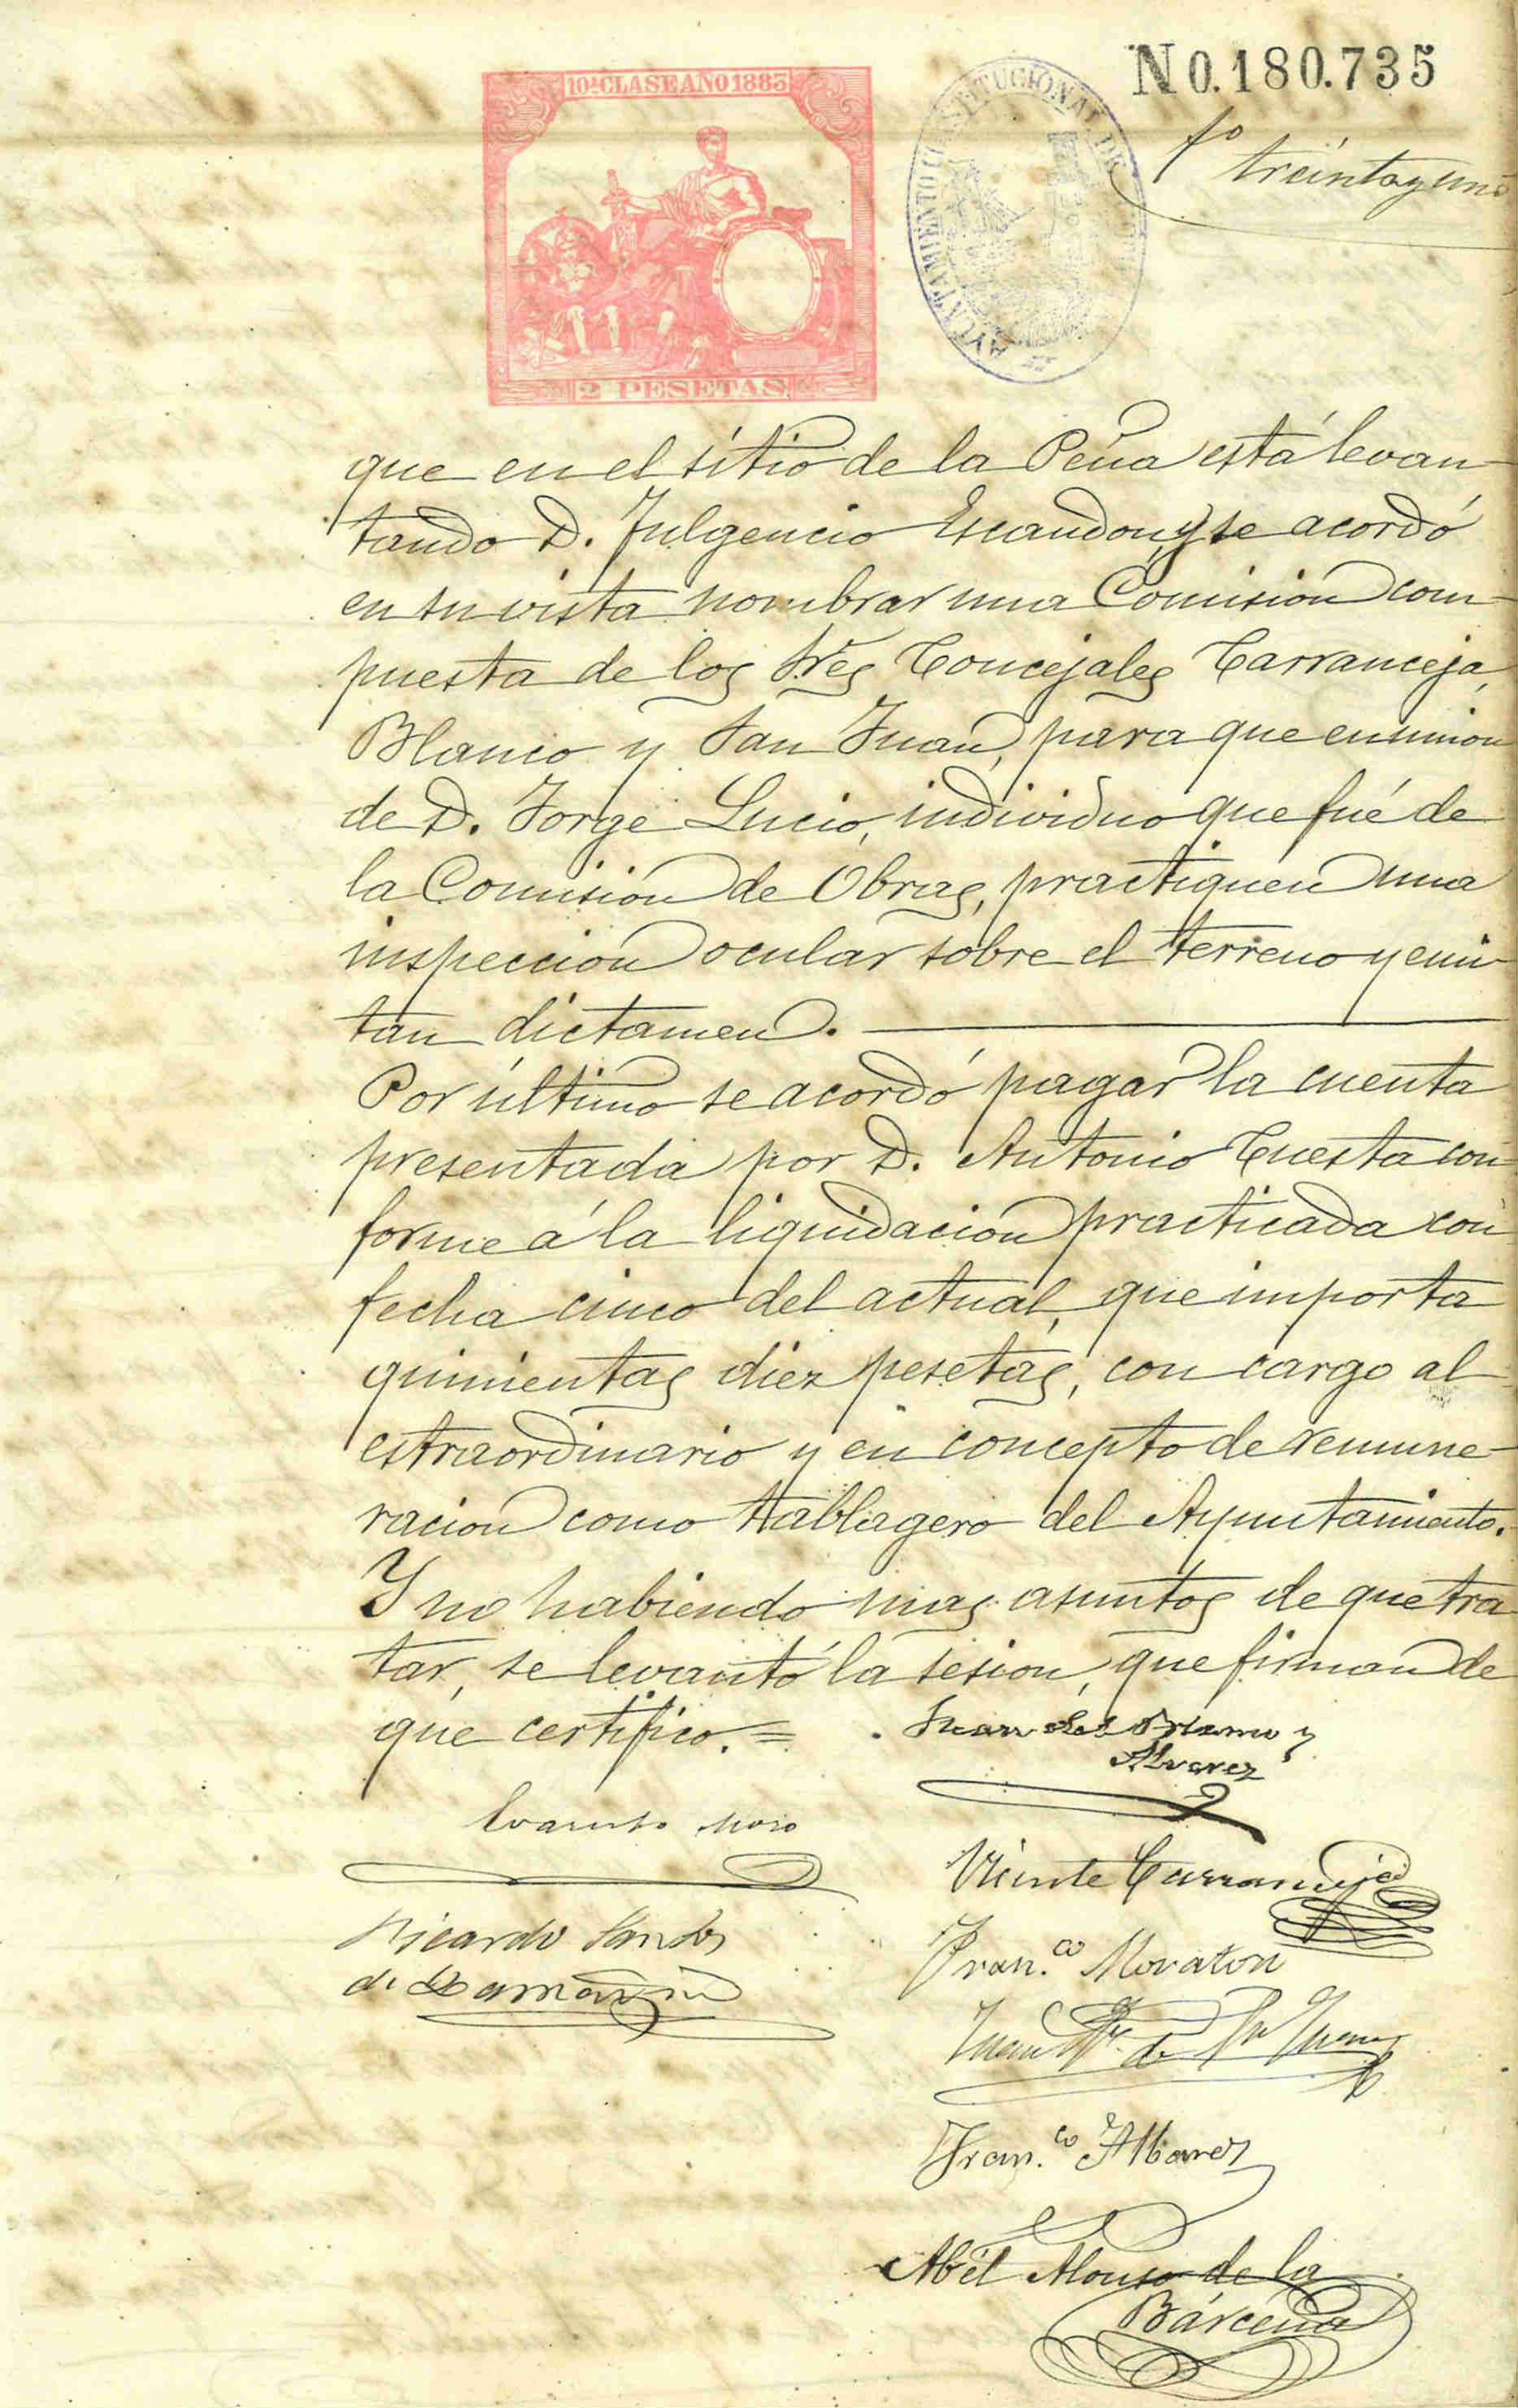 10ª CLASE AÑO 1883
2 PESETAS
AYUNTAMIENTO CONSTITUCIONAL DE
N0.180.735
fo treintayuno
que en el sitio de la Peña está levan-
tando D. Fulgencio Escandon, y se acordó
en su vista nombrar una Comision com-
puesta de los Sres Concejales Carranceja,
Blanco y San Juan, para que en union
de D. Jorge Lucio, individuo que fué de
la Comision de Obras, practiquen una
inspeccion ocular sobre el terreno y emi-
tan dictamen.
Por último se acordó pagar la cuenta
presentada por D. Antonio Cuesta con
forme á la liquidacion practicada con
fecha cinco del actual, que importa
quinientas diez pesetas, con cargo al
estraordinario y en concepto de remune-
racion como tablagero del Ayuntamiento.
Y no habiendo mas asuntos de que tra
tar, se levantó la sesion, que firman de
que certifico.=
Juan del Blanco y
Alvarez
Evaristo Moro
Vicente Carranceja
Ricardo
de
Fran.co Moraton
Juan de Sn Juan
Fran.co Albarez
Abél Alonso de la
Bárcena